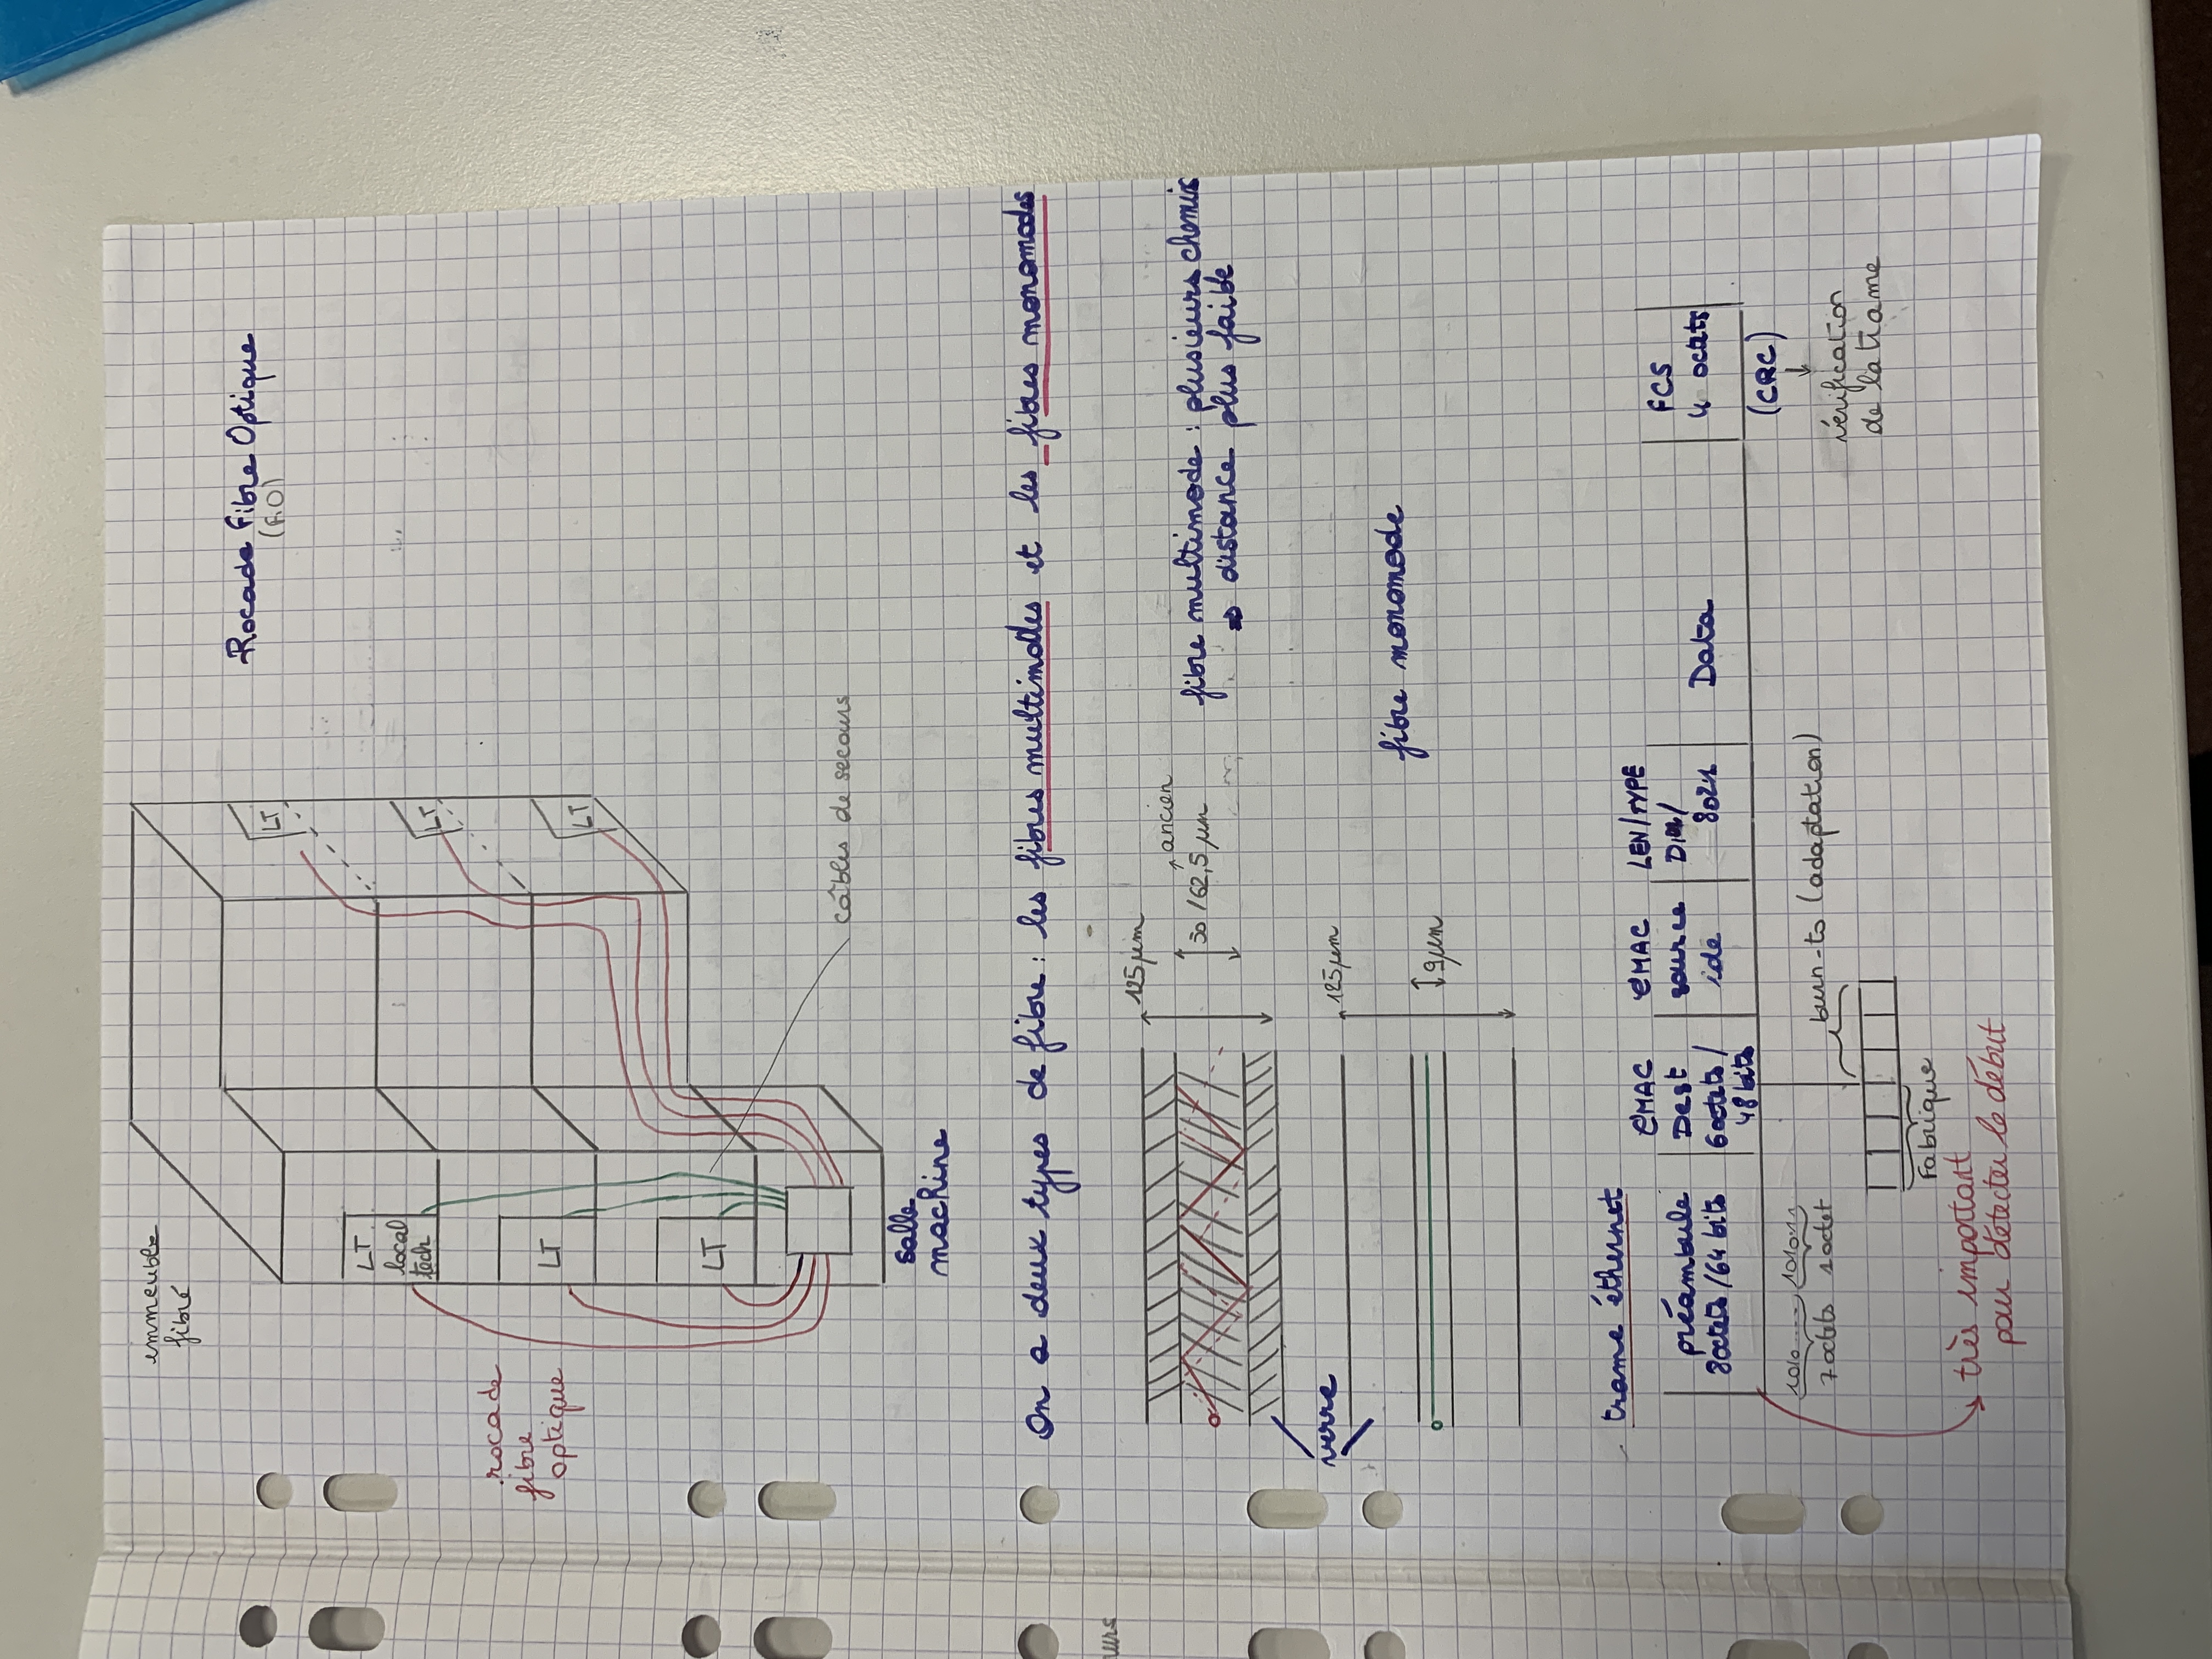 immeuble
fibré
Rocade Fibre Optique
(F.O)
LT
LT
local
tech
LT
rocade
fibre
optique
LT
LT
LT
câbles de secours
salle
machine
On a deux types de fibre : les fibres multimodes et les fibres monomodes
urs
125 µm
ancien
50 / 62,5 µm
fibre multimode : plusieurs chemins
⇒ distance plus faible
verre
125 µm
fibre monomode
9 µm
trame éthernet
@MAC
Dest
6 octets /
48 bits
@MAC
source
ide
LEN/TYPE
préambule
8 octets / 64 bits
Data
FCS
4 octets
(CRC)
1010.... 1010..11
7 octets 1 octet
burn-to (adaptation)
vérification
de la trame
Fabrique
très important
pour détecter le début